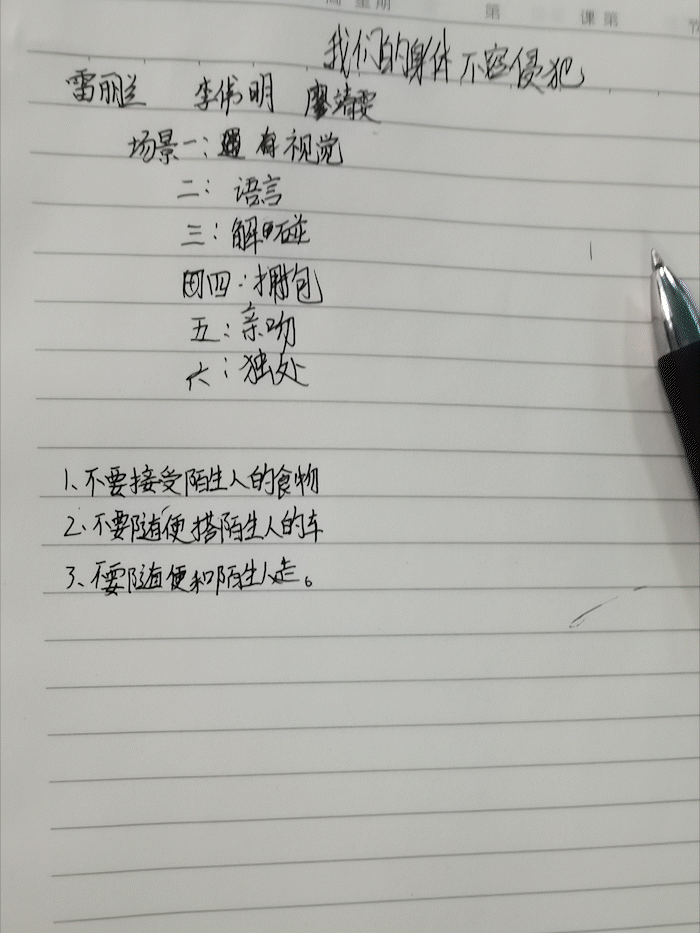 星期 第 课第
我们的身体不容侵犯
雷丽兰 李伟明 廖靖雯
场景一：视觉
二：语言
三：解碰
四：拥包
五：亲吻
六：独处
1、不要接受陌生人的食物
2、不要随便搭陌生人的车
3、不要随便和陌生人走。